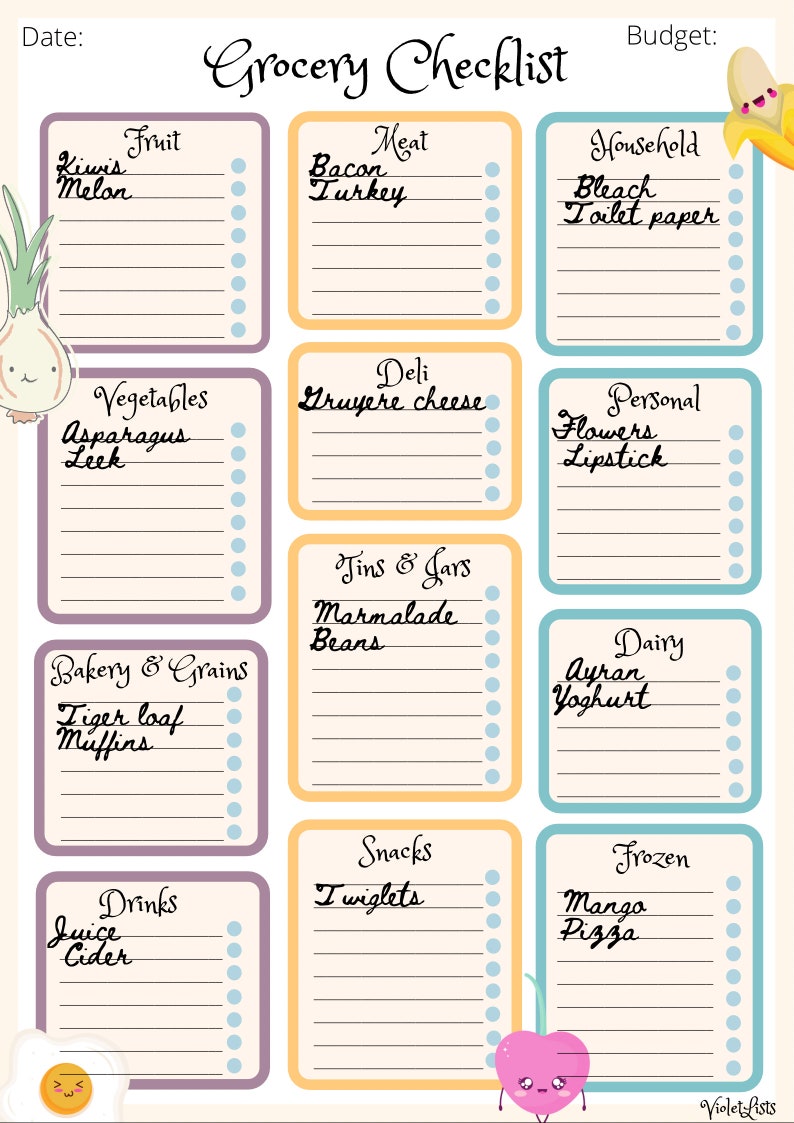 Date:
Budget:
Grocery Checklist
Fruit
Kiwis
Melon
Vegetables
Asparagus
Leek
Bakery & Grains
Tiger loaf
Muffins
Drinks
Juice
Cider
Meat
Bacon
Turkey
Deli
Gruyere cheese
Tins & Jars
Marmalade
Beans
Snacks
Twiglets
Household
Bleach
Toilet paper
Personal
Flowers
Lipstick
Dairy
Ayran
Yoghurt
Frozen
Mango
Pizza
VioletLists